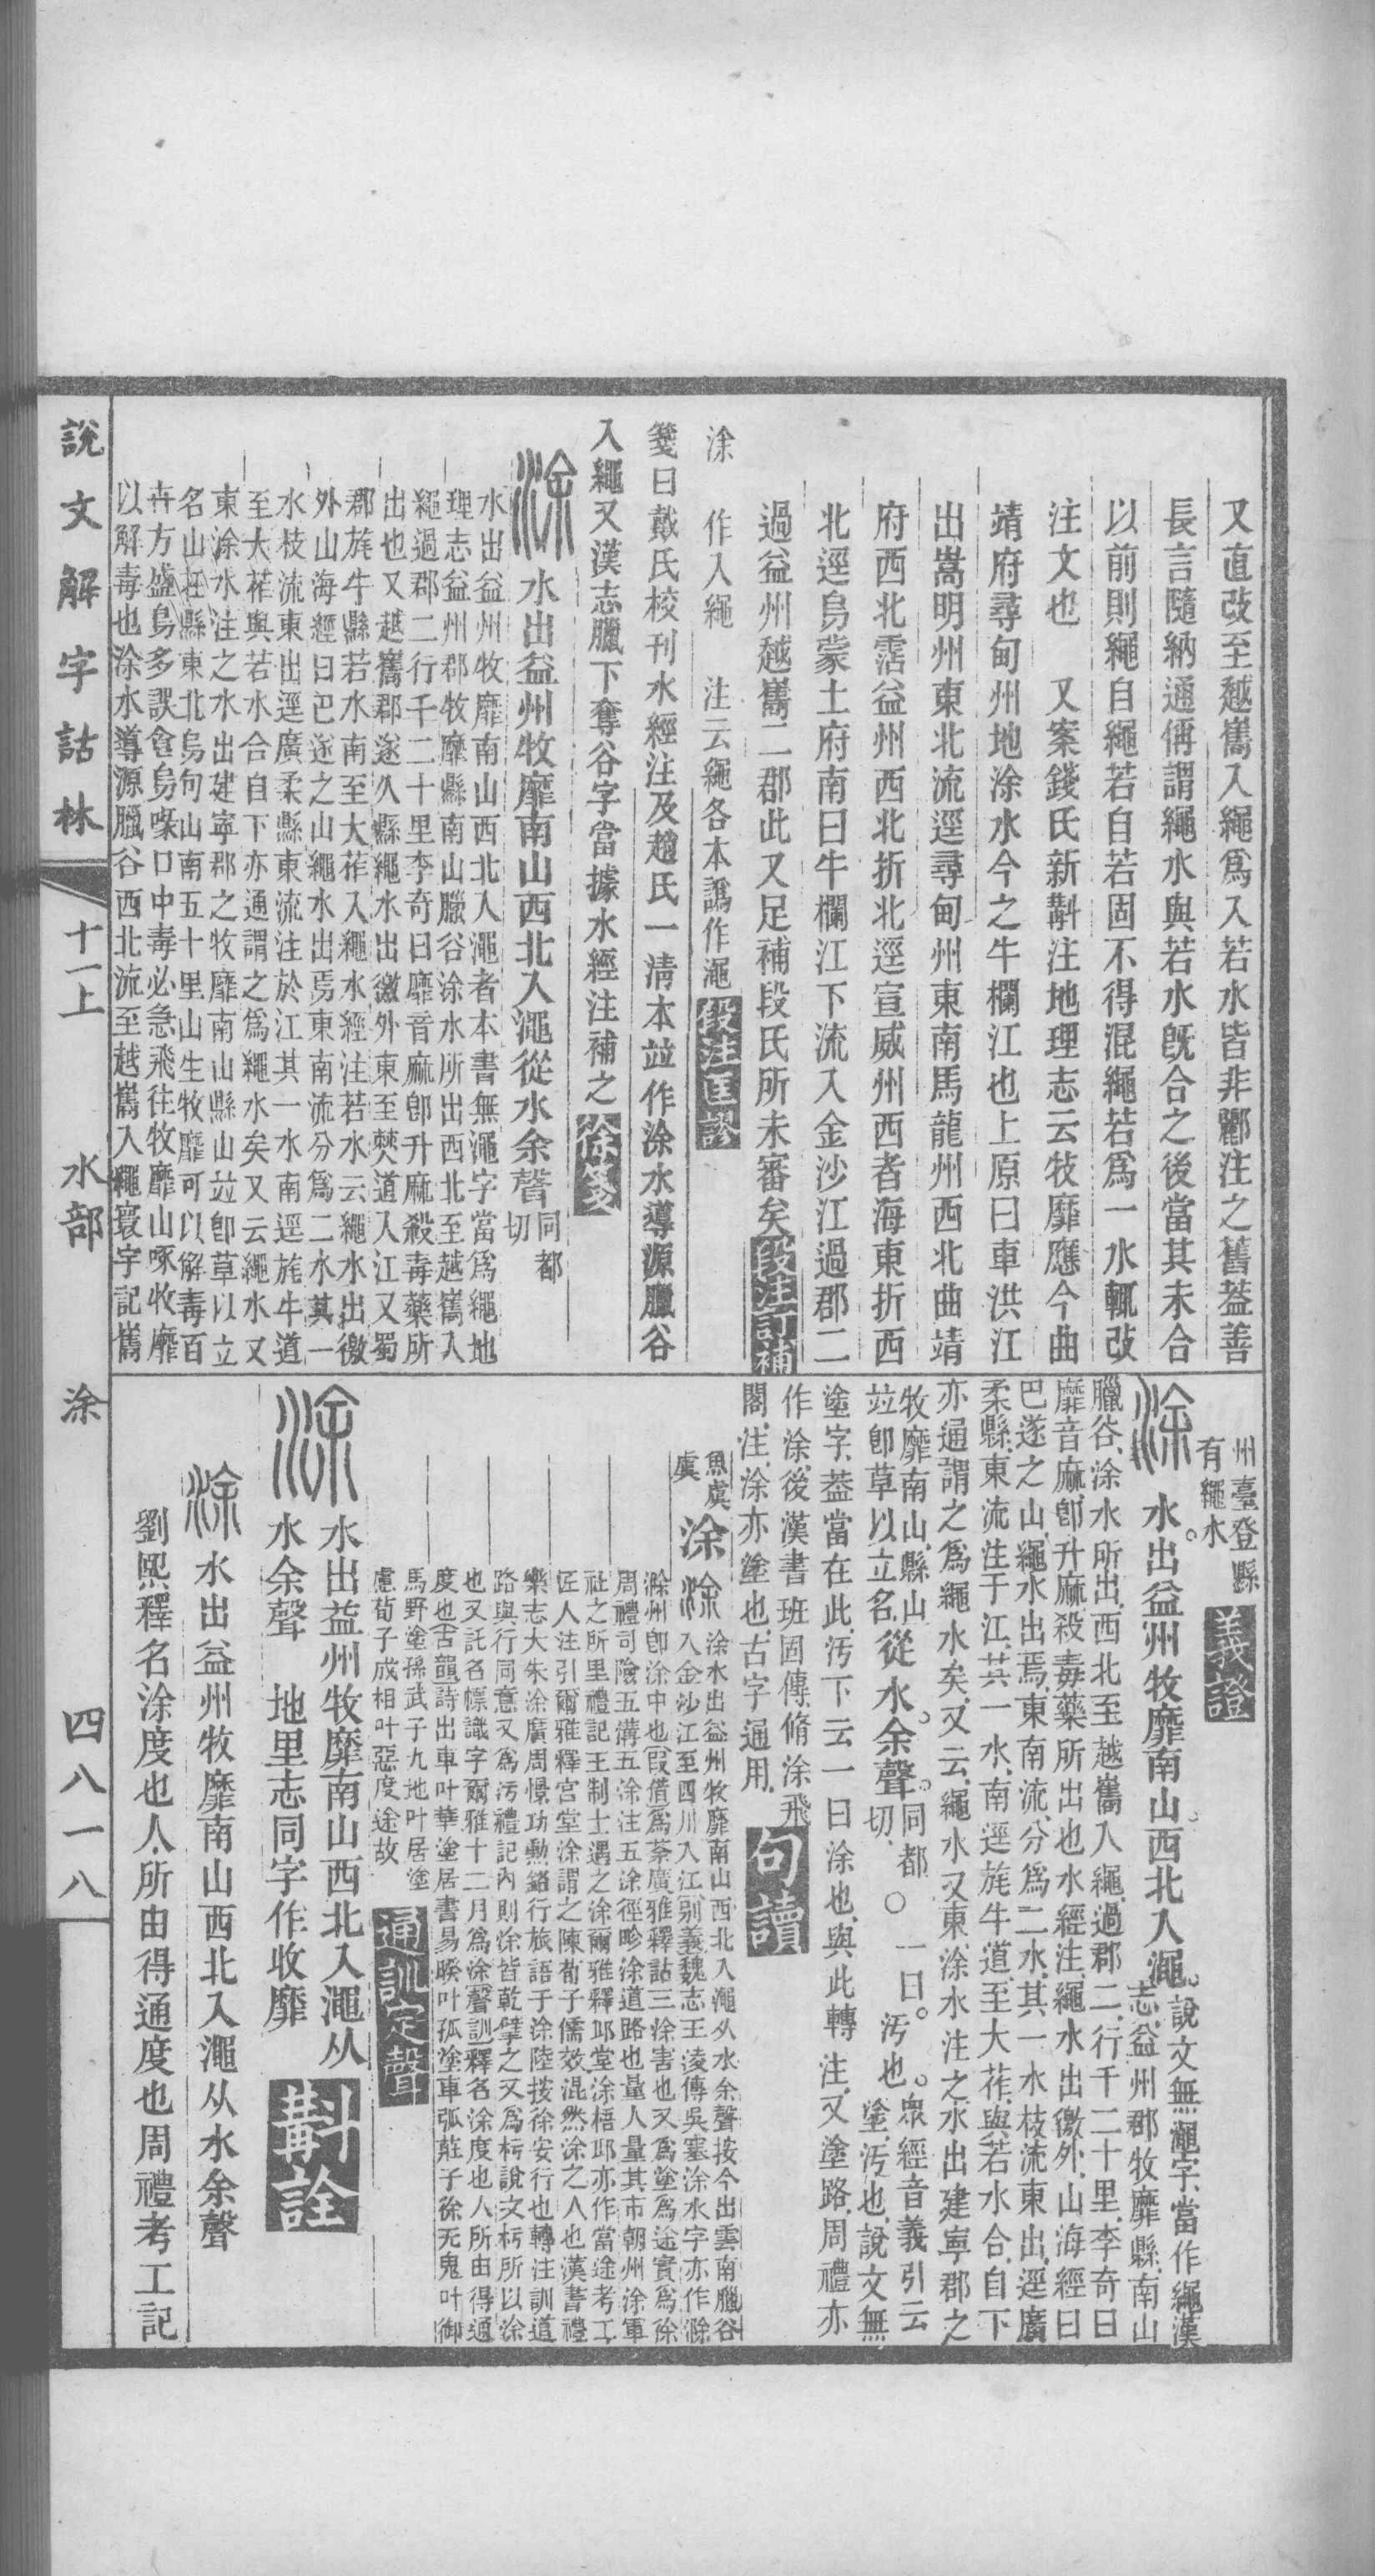 又直改至越巂入繩爲入若水皆非酈注之舊葢善
長言隨納通偁謂繩水與若水旣合之後當其未合
以前則繩自繩若自若固不得混繩若爲一水輒改
注文也　又案錢氏新斠注地理志云牧靡應今曲
靖府尋甸州地涂水今之牛欄江也上原曰車洪江
出嵩明州東北流逕尋甸州東南馬龍州西北曲靖
府西北霑益州西北折北逕宣威州西者海東折西
北逕烏蒙土府南曰牛欄江下流入金沙江過郡二
過益州越巂二郡此又足補段氏所未審矣段注訂補
涂　作入繩　注云繩各本譌作澠段注匡謬
箋曰戴氏校刊水經注及趙氏一清本竝作涂水導源臘谷
入繩又漢志臘下奪谷字當據水經注補之徐箋
涂水出益州牧靡南山西北入澠從水余聲同都切
水出益州牧靡南山西北入澠者本書無澠字當爲繩地
理志益州郡牧靡縣南山臘谷涂水所出西北至越巂入
繩過郡二行千二十里李奇曰靡音麻卽升麻殺毒藥所
出也又越巂郡遂久縣繩水出徼外東至僰道入江又蜀
郡旄牛縣若水南至大莋入繩水經注若水云繩水出徼
外山海經曰巴遂之山繩水出焉東南流分爲二水其一
水枝流東出逕廣柔縣東流注於江其一水南逕旄牛道
至大莋與若水合自下亦通謂之爲繩水矣又云繩水又
東涂水注之水出建寧郡之牧靡南山縣山竝卽草以立
名山在縣東北烏句山南五十里山生牧靡可以解毒百
卉方盛烏多誤食烏喙口中毒必急飛往牧靡山啄牧靡
以解毒也涂水導源臘谷西北流至越巂入繩寰宇記巂
州臺登縣
有繩水義證
涂水。出益州牧靡南山。西北入澠。說文無澠字、當作繩漢志、益州郡牧靡縣、南山
臘谷、涂水所出、西北至越巂入繩、過郡二、行千二十里、李奇曰
靡音麻、卽升麻、殺毒藥所出也水經注、繩水出徼外、山海經曰
巴遂之山、繩水出焉、東南流、分爲二水、其一水枝流東出、逕廣
柔縣、東流注于江、其一水、南逕旄牛道、至大莋、與若水合、自下
亦通謂之爲繩水矣、又云、繩水又東、涂水注之、水出建寧郡之
牧靡南山、縣山
竝卽草以立名、從水。余聲。同都切、○一曰。汚也。眾經音義引云塗、汚也、說文無
塗字、葢當在此、汚下云一曰涂也、與此轉注、又塗路、周禮亦
作涂、後漢書班固傳、脩涂飛
閣、注、涂亦塗也、古字通用、句讀
魚虞
虞　涂涂涂水出益州牧靡南山西北入澠从水余聲按今出雲南臘谷
入金沙江至四川入江別義魏志王淩傳吳塞涂水字亦作滁
滁州卽涂中也假借爲荼廣雅釋詁三涂害也又爲塗爲途實爲徐
周禮司險五溝五涂注五涂徑畛涂道路也量人量其市朝州涂軍
社之所里禮記王制士遇之涂爾雅釋邱堂涂梧邱亦作當途考工
匠人注引爾雅釋宮堂涂謂之陳荀子儒效混然涂之人也漢書禮
樂志大朱涂廣周憬功勳銘行旅語于涂陸按徐安行也轉注訓道
路與行同意又爲汚禮記內則涂皆乾擘之又爲杇說文杇所以涂
也又託名幖識字爾雅十二月爲涂聲訓釋名涂度也人所由得通
度也古韻詩出車叶華塗居書易睽叶孤塗車弧莊子徐无鬼叶御
馬野塗孫武子九地叶居塗
慮荀子成相叶惡度途故　通訓定聲
涂水出益州牧靡南山西北入澠从
水余聲　地里志同字作收靡　斠詮
涂水出益州牧靡南山西北入澠从水余聲
劉熙釋名涂度也人所由得通度也周禮考工記
說文解字詁林　十一上　水部　涂　四八一八